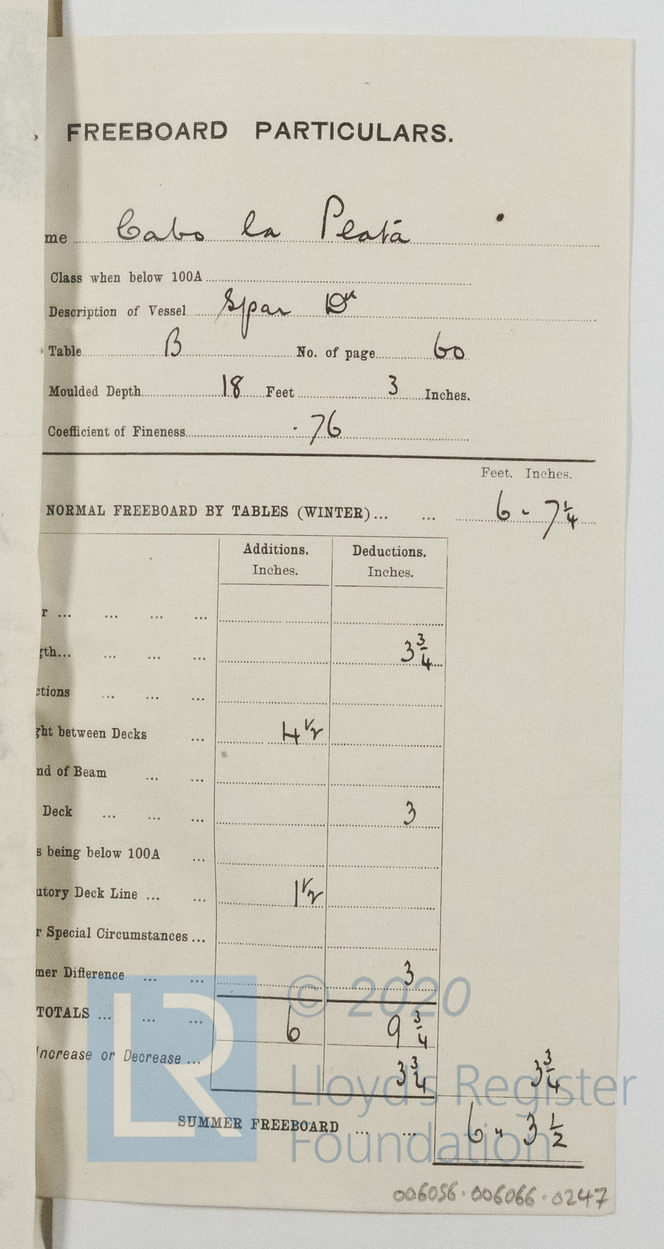 FREEBOARD PARTICULARS.
me Cabo la Plata
Class when below 100A
Description of Vessel Spar Dk
Table B No. of page 60
Moulded Depth 18 Feet 3 Inches.
Coefficient of Fineness ·76
Feet. Inches.
NORMAL FREEBOARD BY TABLES (WINTER)... ... 6 - 7 1/4
Additions. Inches. Deductions. Inches.
r ... ... ... ...
gth... ... ... ... 3 3/4
ctions ... ... ...
ght between Decks ... 4 1/2
nd of Beam ... ...
Deck ... ... ... 3
s being below 100A ...
utory Deck Line ... ... 1 1/2
r Special Circumstances ...
mer Difference ... ... 3
TOTALS ... ... ... 6 9 3/4
Increase or Decrease ... 3 3/4 3 3/4
SUMMER FREEBOARD ... ... 6 - 3 1/2
© 2020
Lloyd's Register
Foundation
LR
006056-006066-0247